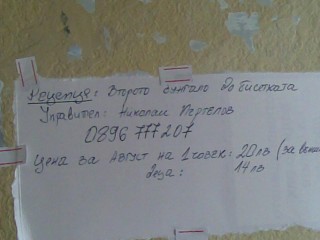 Рецепция: Второто бунгало до бистката
Управител: Николай Пертелов
0896 777 207
Цена за Август на 1 човек: 20лв (за
Деца: 14лв